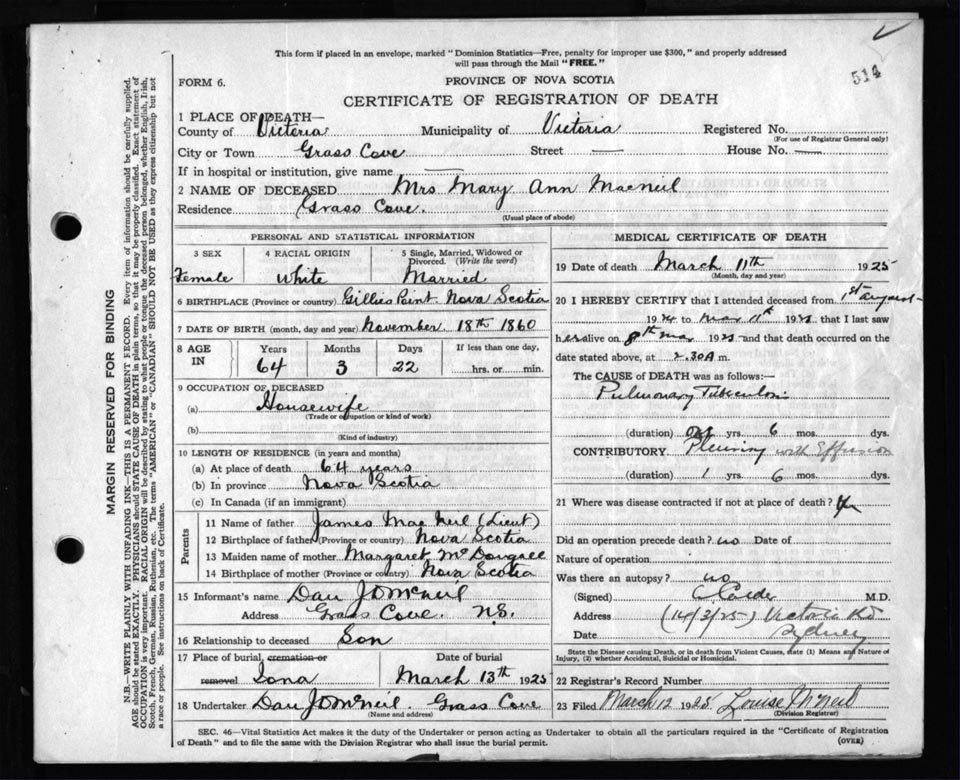 This form if placed in an envelope, marked "Dominion Statistics—Free, penalty for improper use $300," and properly addressed
will pass through the Mail "FREE."
514
FORM 6.
PROVINCE OF NOVA SCOTIA
CERTIFICATE OF REGISTRATION OF DEATH
1 PLACE OF DEATH—
County of Victoria Municipality of Victoria Registered No.
(For use of Registrar General only)
City or Town Grass Cove Street — House No. —
If in hospital or institution, give name —
2 NAME OF DECEASED Mrs Mary Ann MacNeil
Residence Grass Cove.
(Usual place of abode)
PERSONAL AND STATISTICAL INFORMATION
3 SEX 4 RACIAL ORIGIN 5 Single, Married, Widowed or
Divorced. (Write the word)
Female White Married
6 BIRTHPLACE (Province or country) Gillies Point Nova Scotia
7 DATE OF BIRTH (month, day and year) November 18th 1860
8 AGE IN Years Months Days If less than one day,
64 3 22 hrs. or min.
9 OCCUPATION OF DECEASED
(a) Housewife
(Trade or occupation or kind of work)
(b)
(Kind of industry)
10 LENGTH OF RESIDENCE (in years and months)
(a) At place of death 64 years
(b) In province Nova Scotia
(c) In Canada (if an immigrant)
Parents
11 Name of father James MacNeil (Lieut)
12 Birthplace of father (Province or country) Nova Scotia
13 Maiden name of mother Margaret McDougall
14 Birthplace of mother (Province or country) Nova Scotia
15 Informant's name Dan J D McNeil
Address Grass Cove. N.S.
16 Relationship to deceased Son
17 Place of burial, cremation or Date of burial
removal Iona March 13th 1925
18 Undertaker Dan J D McNeil. Grass Cove
(Name and address)
MEDICAL CERTIFICATE OF DEATH
19 Date of death March 11th 1925
(Month, day and year)
20 I HEREBY CERTIFY that I attended deceased from 1st August
1924 to Mar 11th 1925 that I last saw
her alive on 8th Mar 1925 and that death occurred on the
date stated above, at 2.30 A m.
The CAUSE of DEATH was as follows:—
Pulmonary Tuberculosis
(duration) yrs. 6 mos. dys.
CONTRIBUTORY Pleurisy with Effusion
(duration) 1 yrs. 6 mos. dys.
21 Where was disease contracted if not at place of death?
Did an operation precede death? no Date of
Nature of operation
Was there an autopsy? no
(Signed) M.D.
Address (14/3/25) Victoria Rd
Date Sydney
State the Disease causing Death, or in death from Violent Causes, state (1) Means and Nature of
Injury, (2) whether Accidental, Suicidal or Homicidal.
22 Registrar's Record Number
23 Filed March 12 1925 Louise McNeil
(Division Registrar)
SEC. 46—Vital Statistics Act makes it the duty of the Undertaker or person acting as Undertaker to obtain all the particulars required in the "Certificate of Registration
of Death" and to file the same with the Division Registrar who shall issue the burial permit.
(OVER)
MARGIN RESERVED FOR BINDING
N.B.—WRITE PLAINLY WITH UNFADING INK—THIS IS A PERMANENT RECORD. Every item of information should be carefully supplied.
AGE should be stated EXACTLY. PHYSICIANS should STATE CAUSE OF DEATH in plain terms, so that it may be properly classified. Exact statement of
OCCUPATION is very important. RACIAL ORIGIN will be described by stating to what people or tongue the deceased person belonged, whether English, Irish,
Scotch, French, German, Russian, Ruthenian, etc. The terms "AMERICAN" or "CANADIAN" SHOULD NOT BE USED as they express citizenship but not
a race or people. See instructions on back of Certificate.